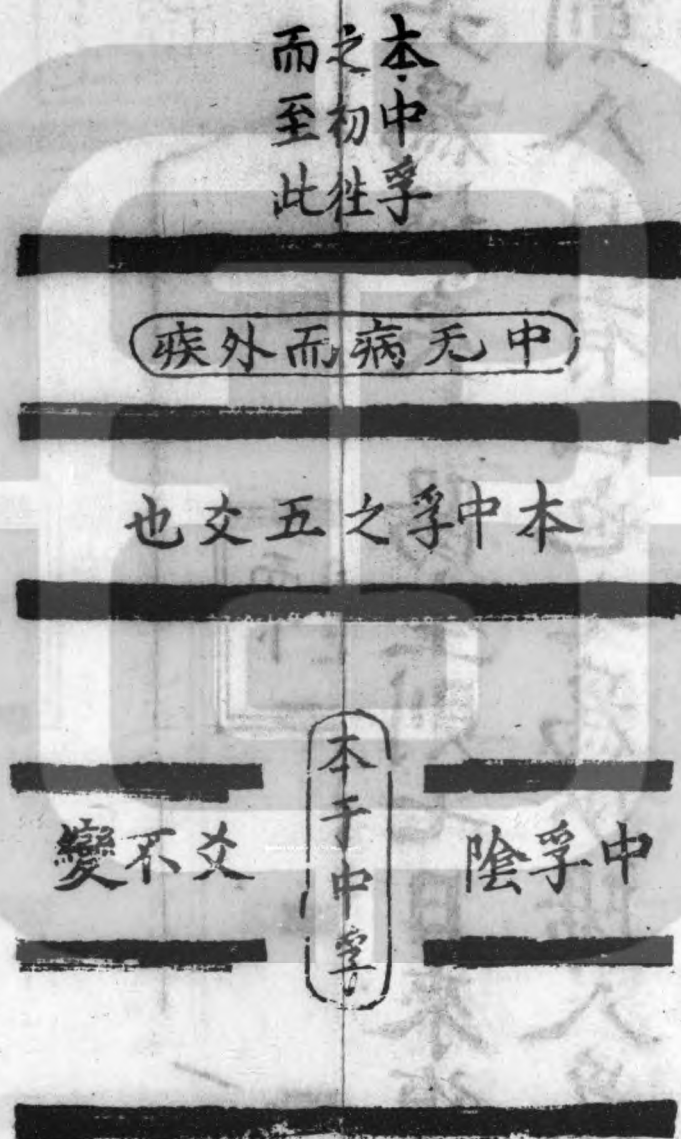 本中孚
之初往
而至此
中无病而外疾
本中孚之五爻也
本于中孚
中孚陰
爻不變